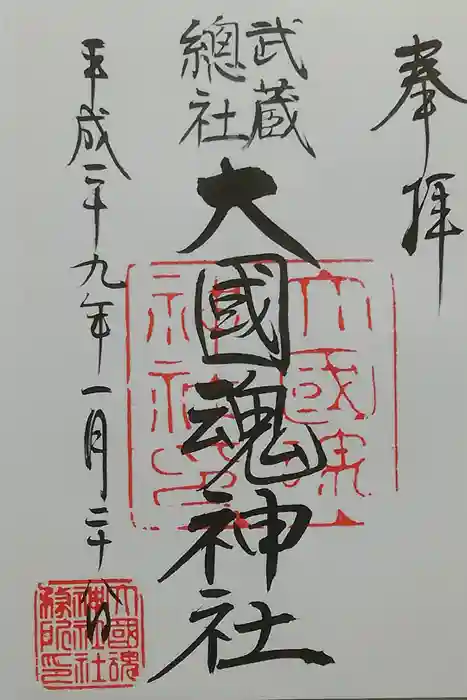 奉拝
武蔵
總社
大國魂神社
平成二十九年一月二十
大國魂
神社印
大國魂
神社社
務所印